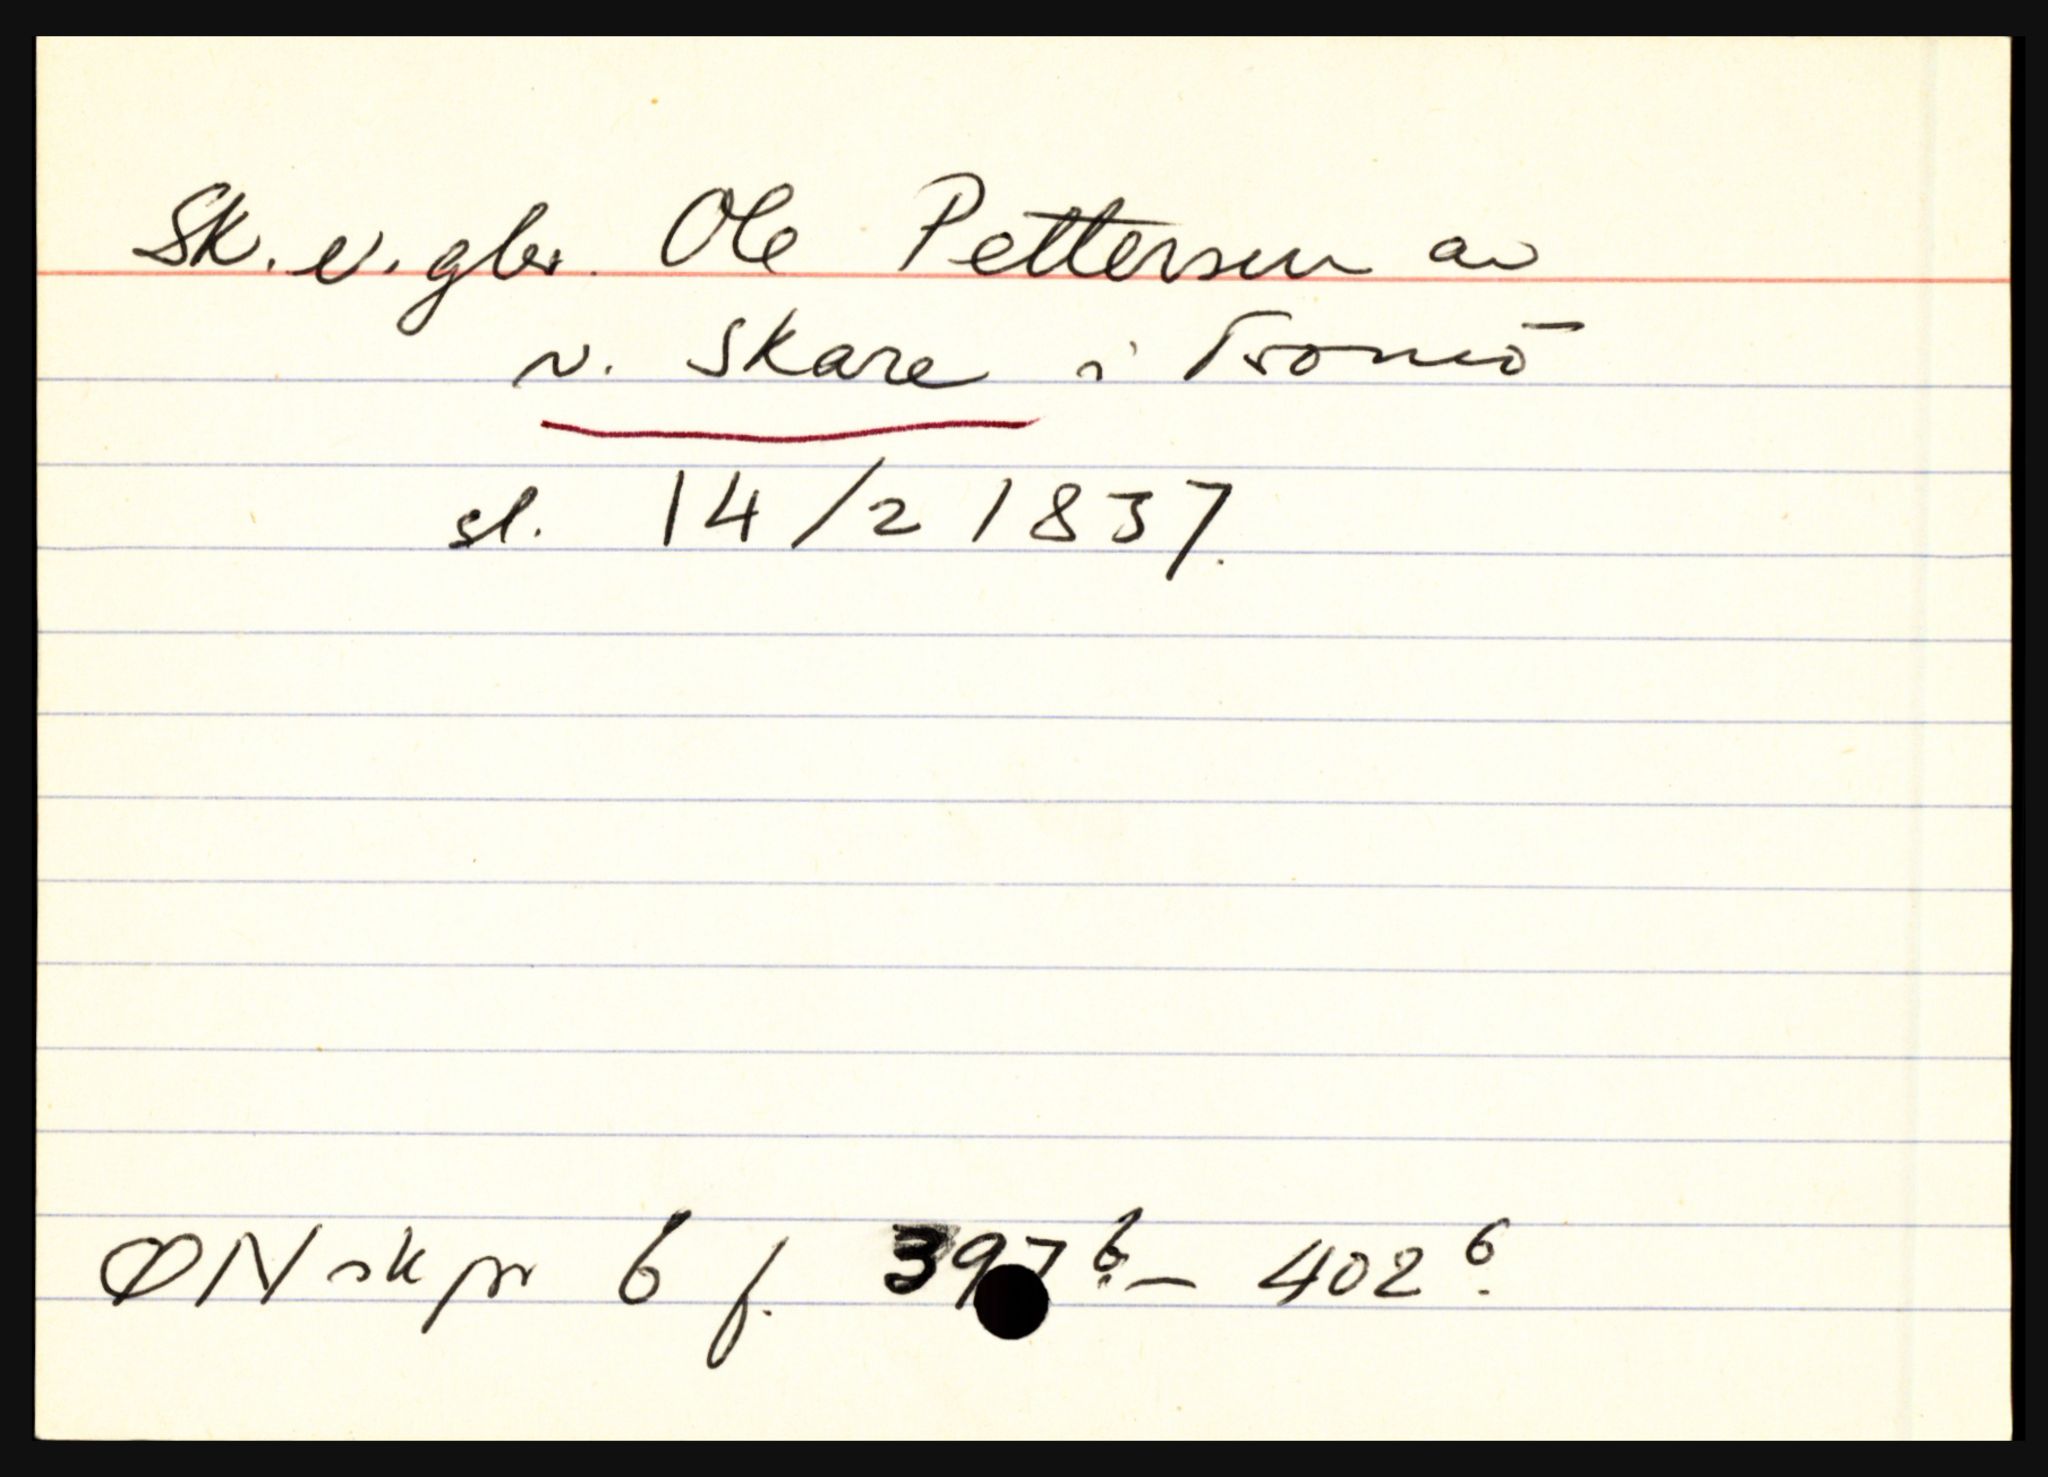 Sk. e. gbr. Ole Pettersen av
n. Skare i Tromö
sl. 14/2 1837.
ØN skpr 6 f. 397 b. – 402 b.